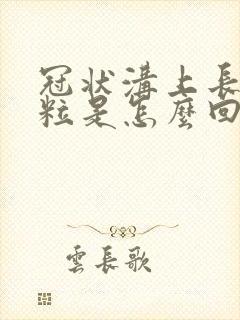 冠状溝上長
粒是怎麼回
雲長歌